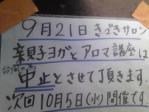 9月21日きづきサロン
親子ヨガとアロマ講座は
中止とさせて頂きます。
次回10月5日(水)開催です